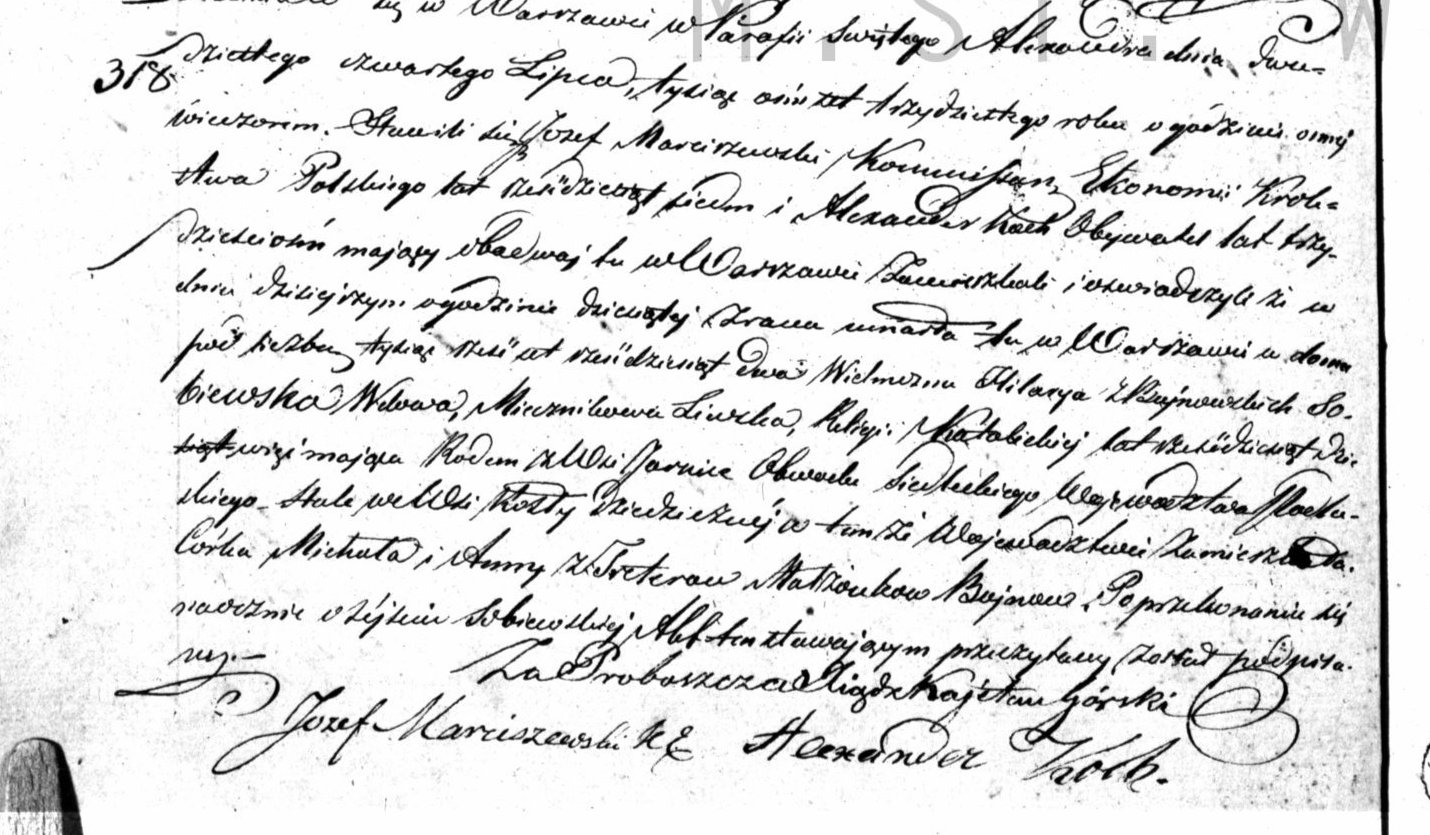 Działo się w Warszawie w Parafii Swiętego Alexandra dnia dwu-
318
dziestego czwartego Lipca, tysiąc ośmset trzydziestego roku o godzinie osmej
wieczorem. Stawili się Jozef Marciszewski Kommissarz Ekonomii Krole-
stwa Polskiego lat sześdziesiąt siedm i Alexander Koch Obywatel lat trzy-
dzieściośm mający obadwaj tu w Warszawie Zamieszkali i oswiadczyli że w
dniu dzisiejszym o godzinie dziesiątej Zrana umarła tu w Warszawie w domu
pod liczbą tysiąc sześć set sześdziesiąt dwa Wielmożna Hilarya z Bujnowskich So-
biewska Wdowa, Miecznikowa Liwska, Religii Katolickiej lat sześdziesiąt dzie
więć mająca Rodem ze Wsi Jarnice Obwodu Siedleckiego Województwa Podla-
skiego stale we Wsi Kozły Dziedzicznej w temże Województwie Zamieszkała.
Córka Michała i Anny z Treterow Małżonkow Bujnow. Po przekonaniu się
naocznie o zejściu Sobiewskiej, Akt ten stawającym przeczytany Został podpisa-
ny.-
Za Proboszcza Xiądz Kajetan Górski
Jozef Marciszewski K E Alexander Koch.